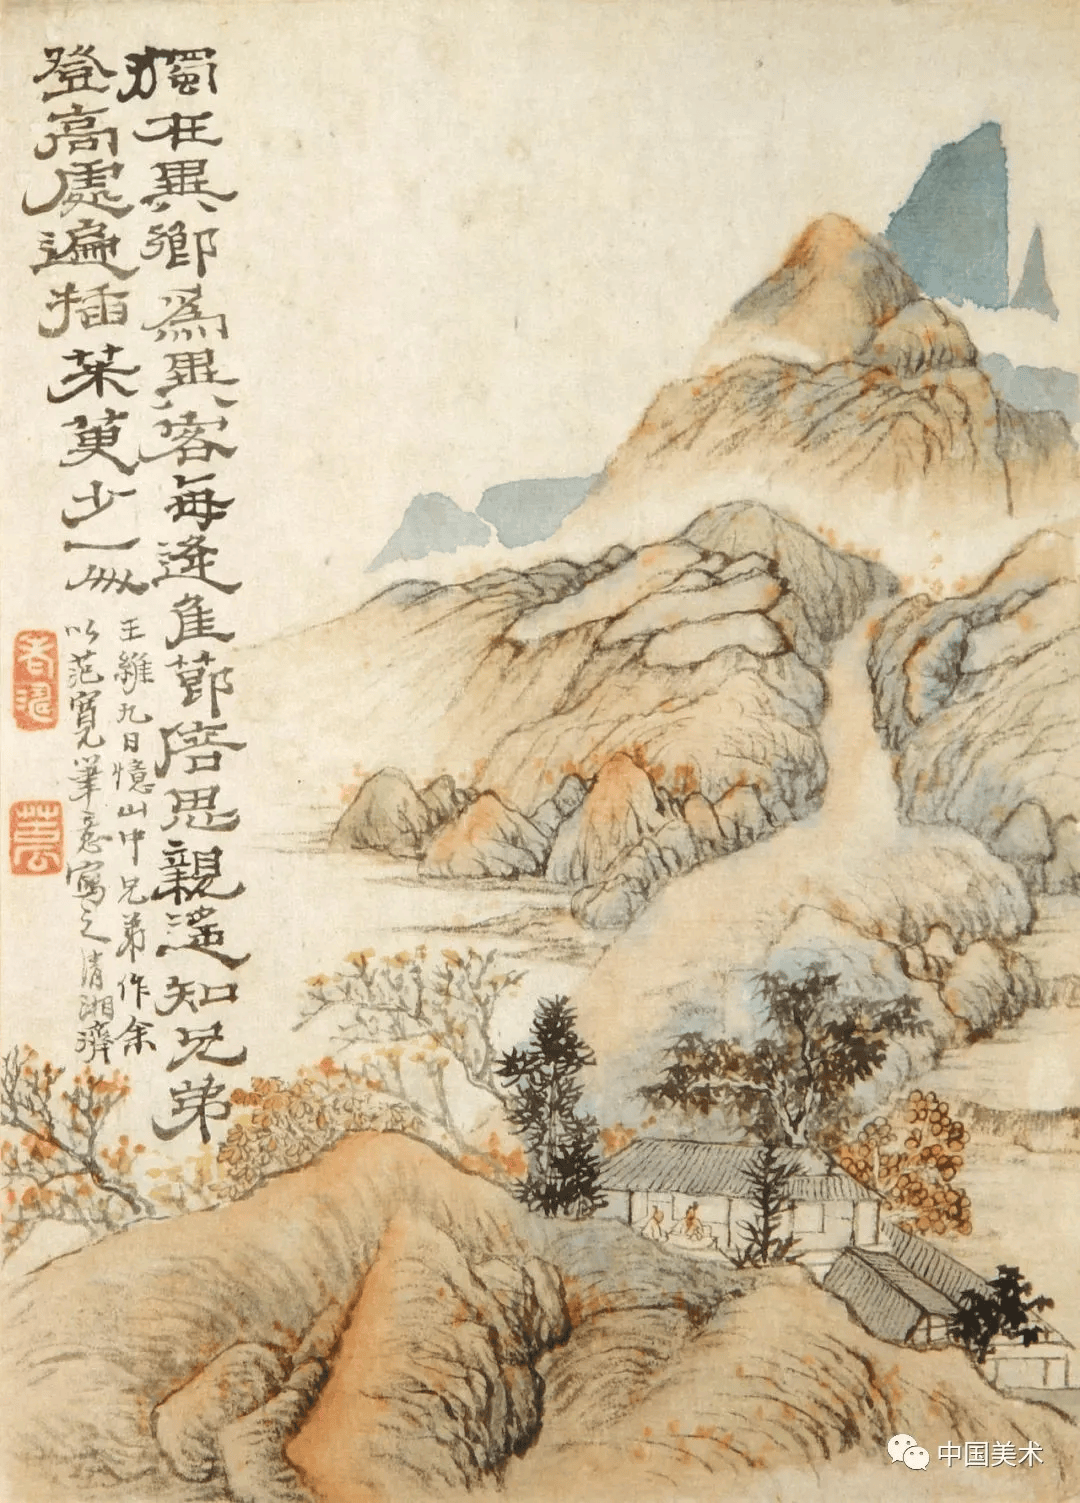 獨在異鄉爲異客每逢佳節倍思親遙知兄弟
登高處遍插茱萸少一人
王維九日憶山中兄弟作余
以范寬筆意寫之清湘濟
老濤
中国美术